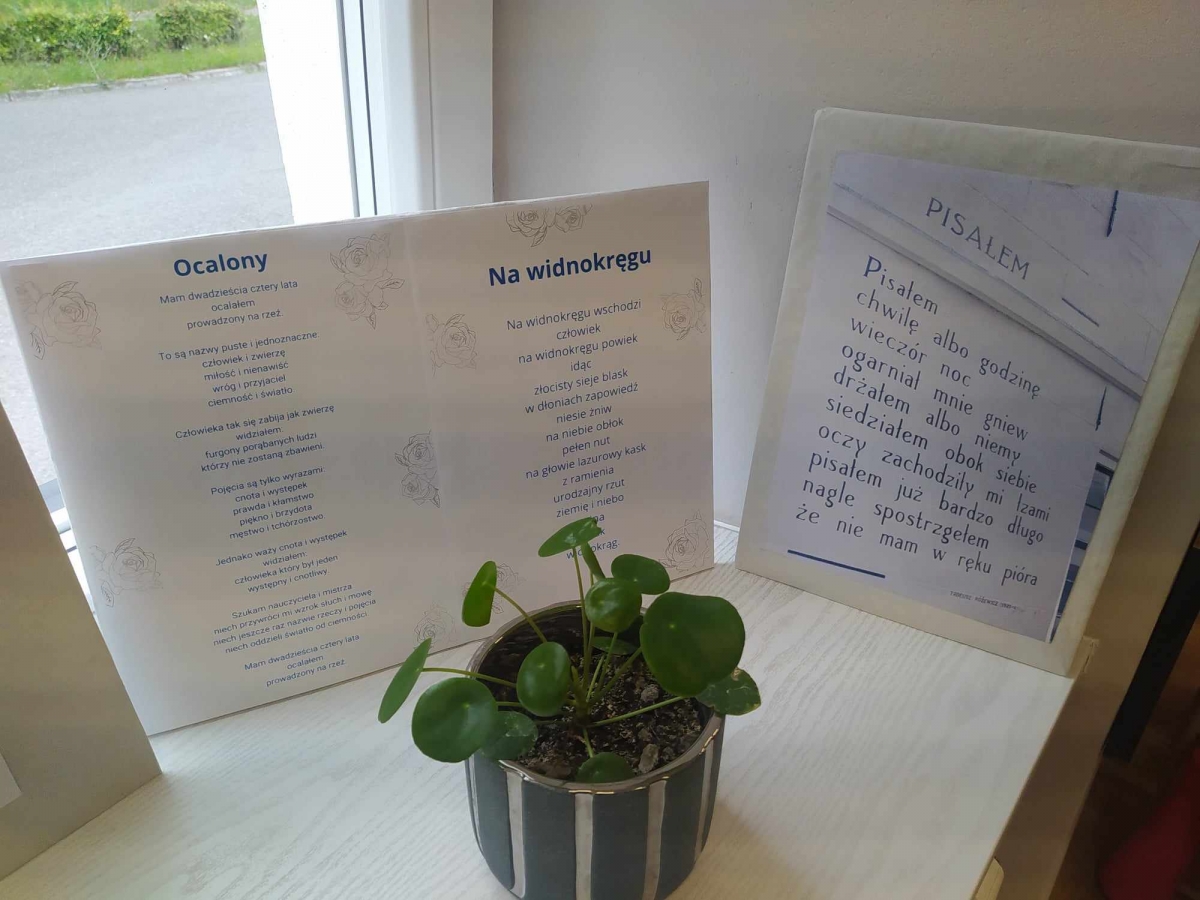 Ocalony
Mam dwadzieścia cztery lata
ocalałem
prowadzony na rzeź.
To są nazwy puste i jednoznaczne:
człowiek i zwierzę
miłość i nienawiść
wróg i przyjaciel
ciemność i światło.
Człowieka tak się zabija jak zwierzę
widziałem:
furgony porąbanych ludzi
którzy nie zostaną zbawieni.
Pojęcia są tylko wyrazami:
cnota i występek
prawda i kłamstwo
piękno i brzydota
męstwo i tchórzostwo.
Jednako waży cnota i występek
widziałem:
człowieka który był jeden
występny i cnotliwy.
Szukam nauczyciela i mistrza
niech przywróci mi wzrok słuch i mowę
niech jeszcze raz nazwie rzeczy i pojęcia
niech oddzieli światło od ciemności.
Mam dwadzieścia cztery lata
ocalałem
prowadzony na rzeź.
Na widnokręgu
Na widnokręgu wschodzi
człowiek
na widnokręgu powiek
idąc
złocisty sieje blask
w dłoniach zapowiedź
niesie żniw
na niebie obłok
pełen nut
na głowie lazurowy kask
z ramienia
urodzajny rzut
ziemię i niebo
PISAŁEM
Pisałem
chwilę albo godzinę
wieczór noc
ogarniał mnie gniew
drżałem albo niemy
siedziałem obok siebie
oczy zachodziły mi łzami
pisałem już bardzo długo
nagle spostrzegłem
że nie mam w ręku pióra